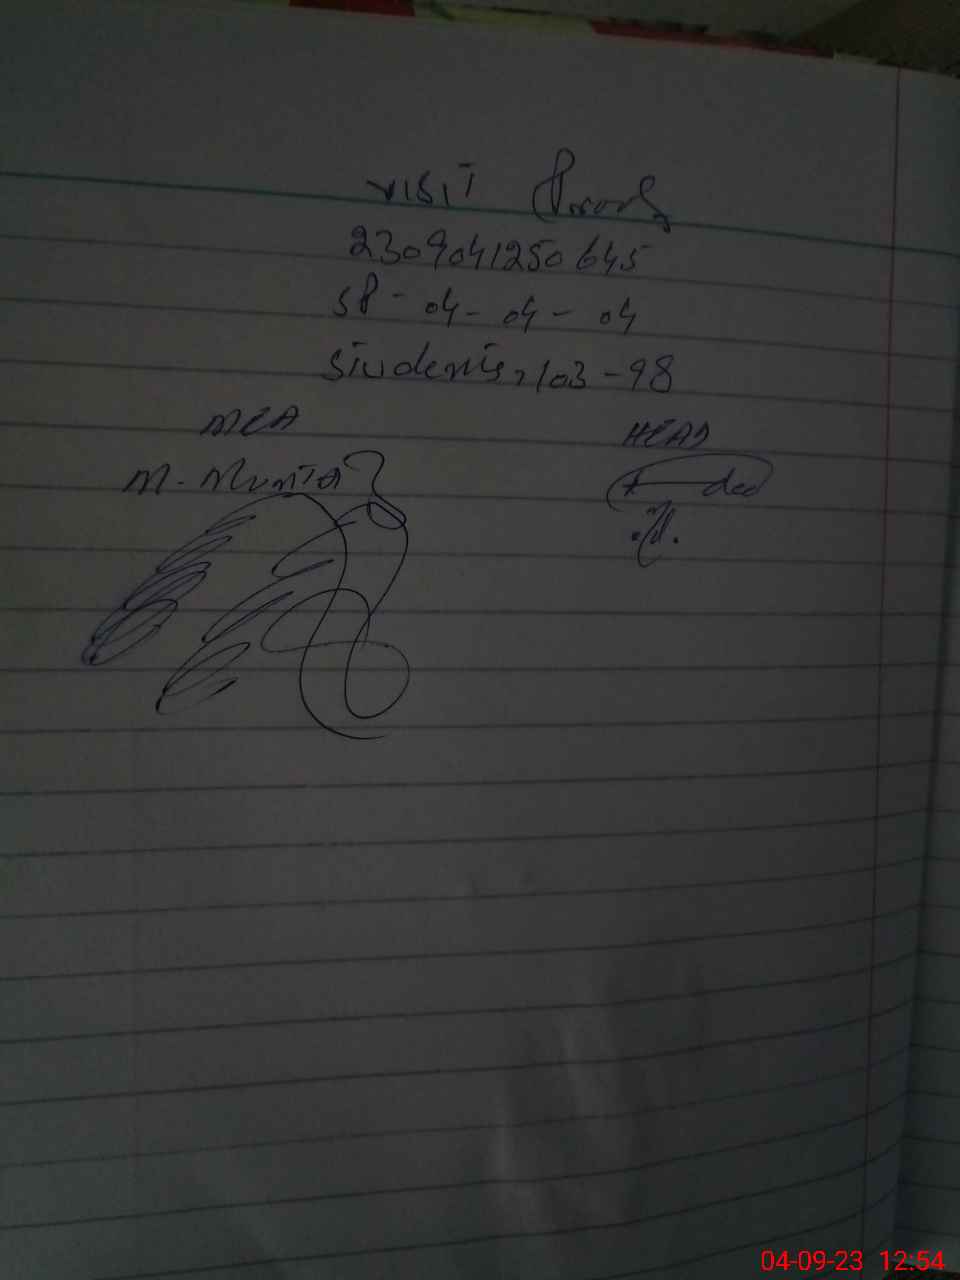 VISIT Proof
2309041250645
SP - 04 - 04 - 04
Students, 103 - 98
MEA
HEAD
M. Mumtaz
04-09-23 12:54